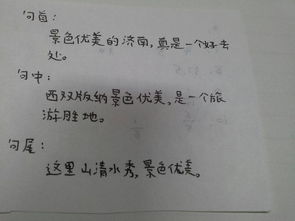 句首：
景色优美的济南，真是一个好去
处。
句中：
西双版纳景色优美，是一个旅
游胜地。
句尾：
这里山清水秀，景色优美。